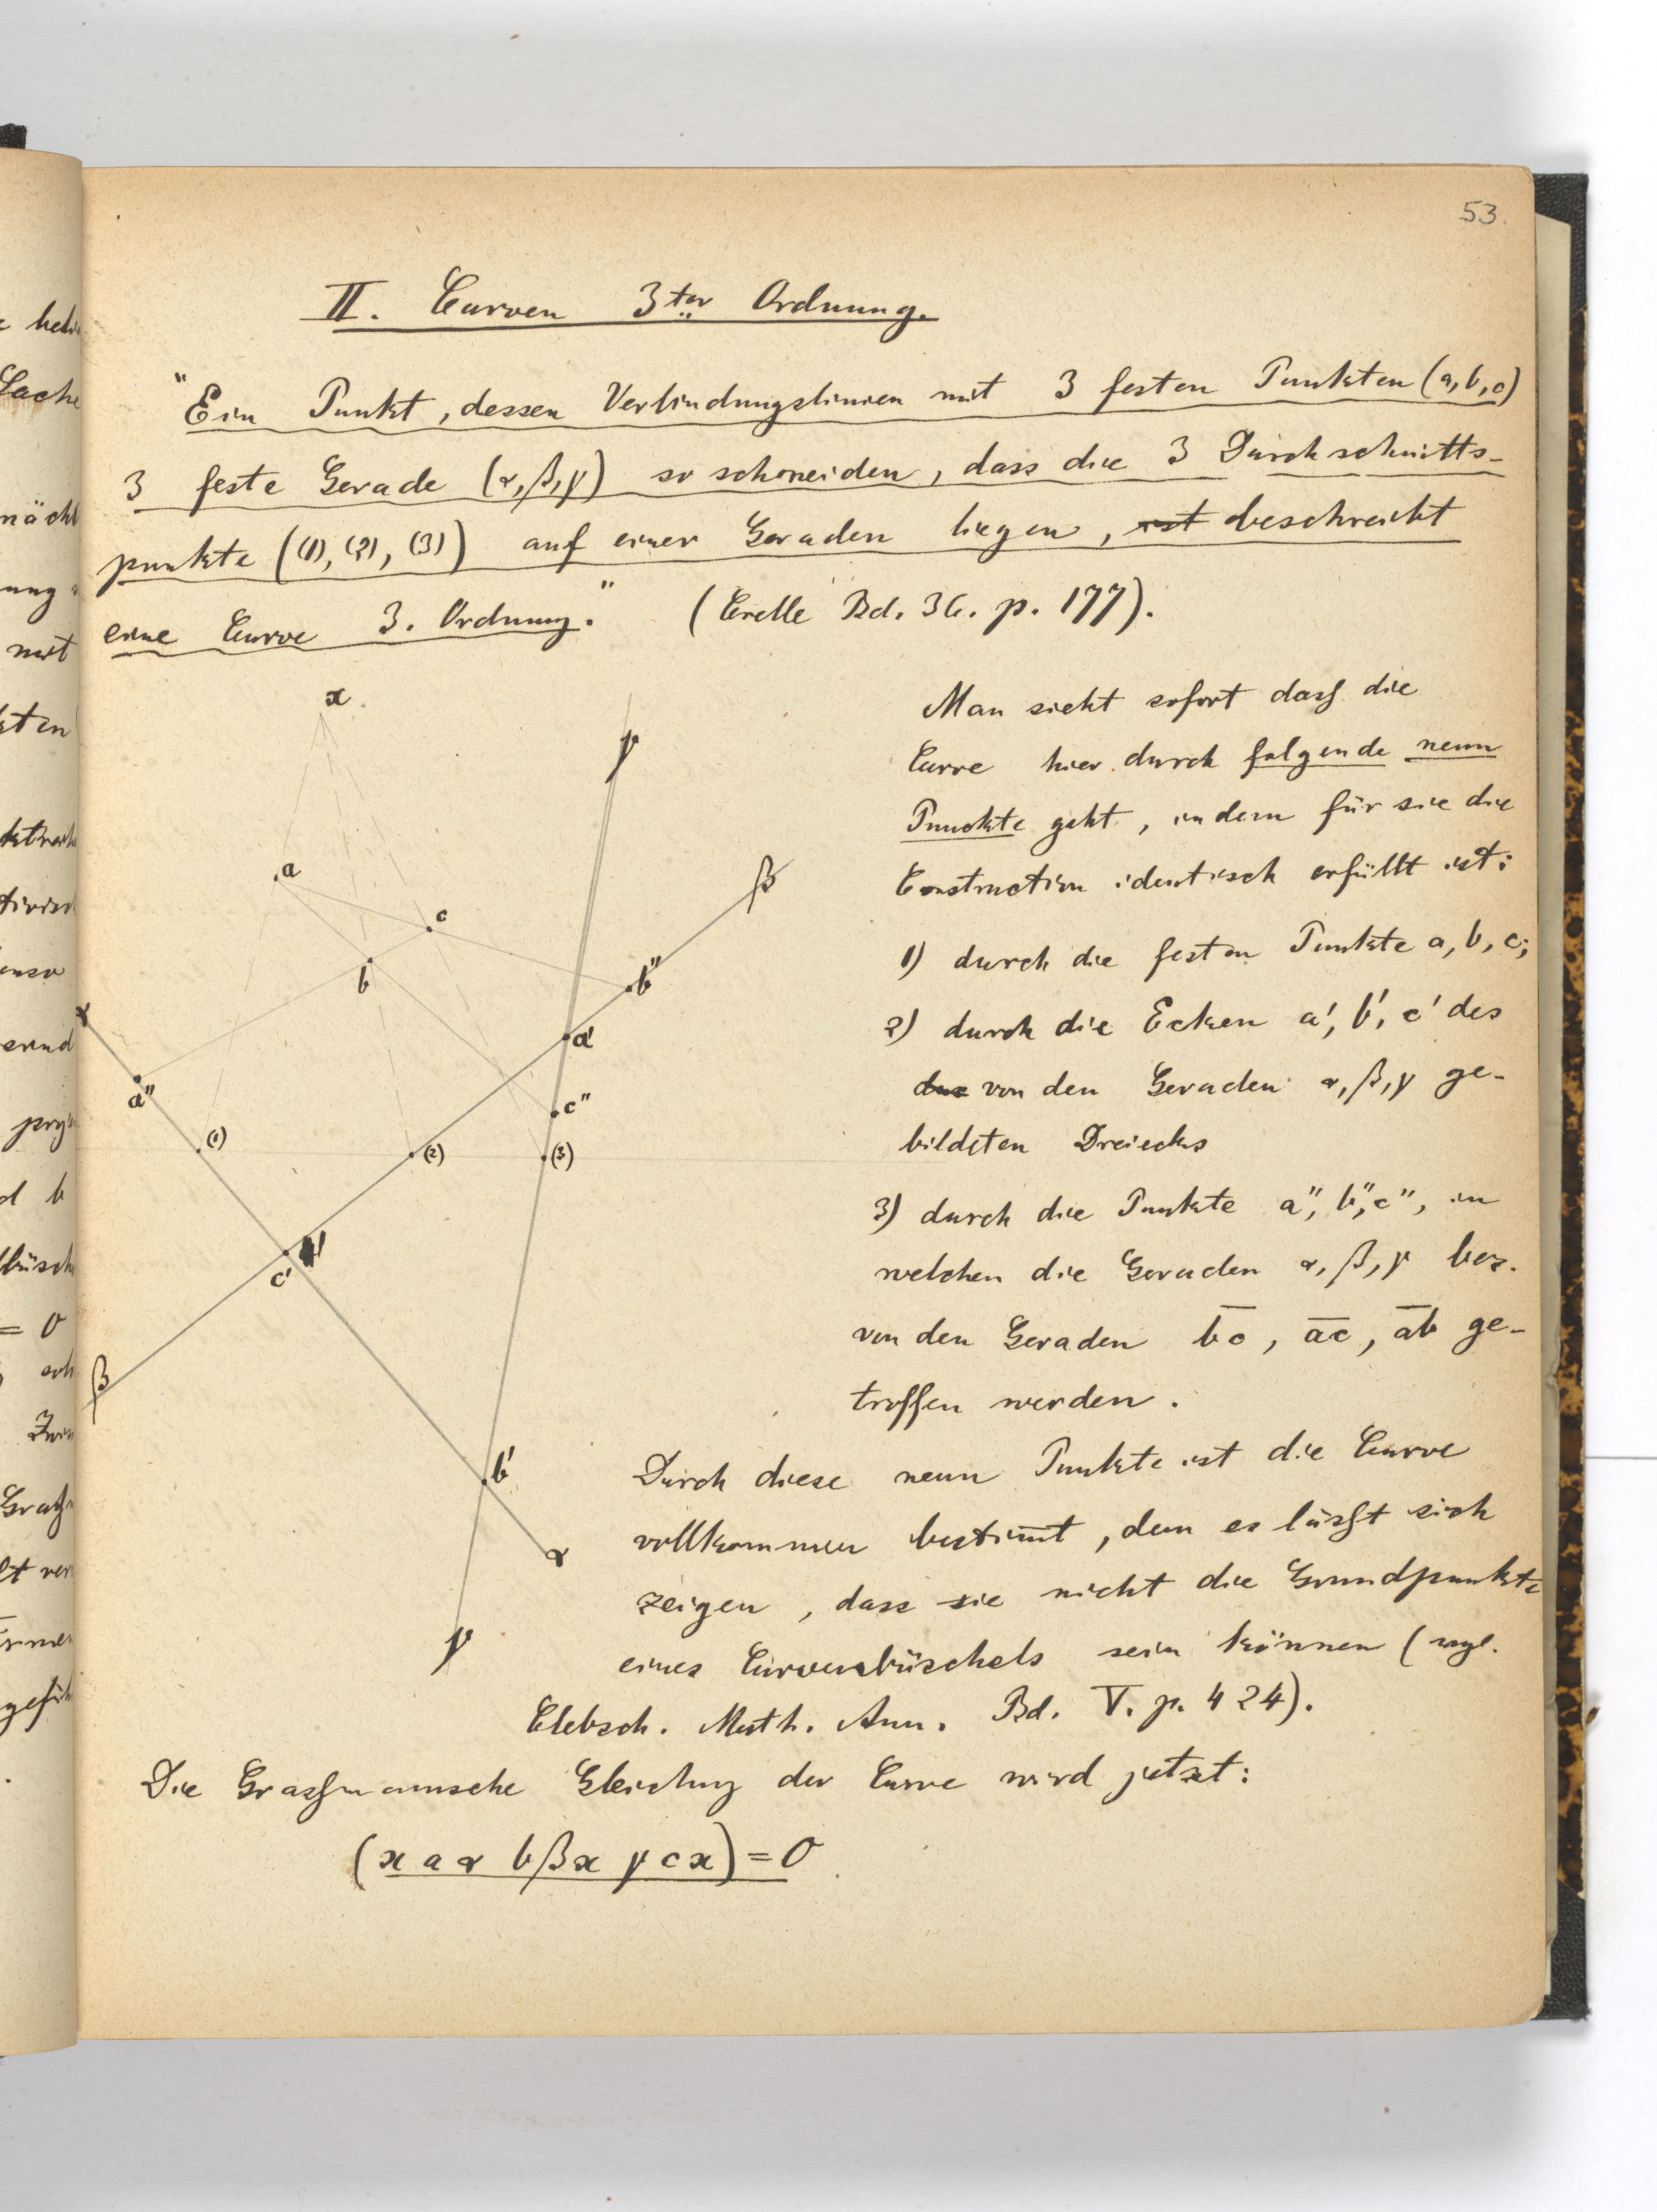 53.
II. Curven 3ter Ordnung.
"Ein Punkt, dessen Verbindungslinien mit 3 festen Punkten (a, b, c)
3 feste Gerade (α, β, γ) so schneiden, dass die 3 Durchschnitts-
punkte ((1), (2), (3)) auf einer Geraden liegen, ist beschreibt
eine Curve 3. Ordnung." (Crelle Bd. 36. p. 177).
x
γ
β
a
c
b
b"
α
a'
a"
c"
(1)
(2)
(3)
b'
c'
β
b'
α
γ
Man sieht sofort dass die
Curve hier durch folgende neun
Punckte geht, indem für sie die
Construction identisch erfüllt ist:
1) durch die festen Punkte a, b, c;
2) durch die Ecken a', b', c' des
das von den Geraden α, β, γ ge-
bildeten Dreiecks
3) durch die Punkte a", b", c", in
welchen die Geraden α, β, γ bez.
von den Geraden bc, ac, ab ge-
troffen werden.
Durch diese neun Punkte ist die Curve
vollkommen bestim̄t, den es lässt sich
zeigen, dass sie nicht die Grundpunkte
eines Curvenbüschels sein können (vgl.
Clebsch. Math. Ann. Bd. V. p. 424).
Die Grassmannsche Gleichung der Curve wird jetzt:
(x a α b β x γ c x) = 0
nächt
mit
= 0